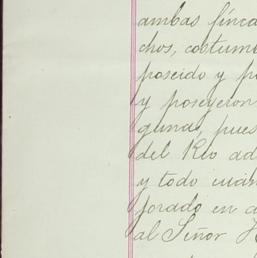 ambas finca
chos, costum
poseido y p
y poseyeron
guna, pues
del Rio ad
y todo cuan
porado en a
al Señor